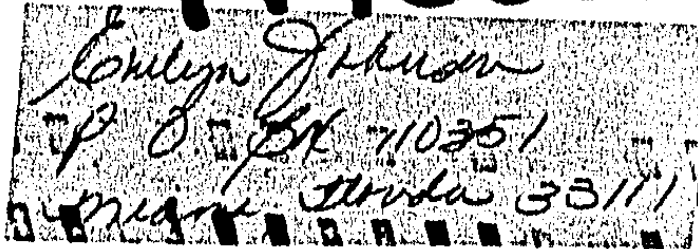 Evelyn Johnson
P O BX 710351
Miami Florida 33111